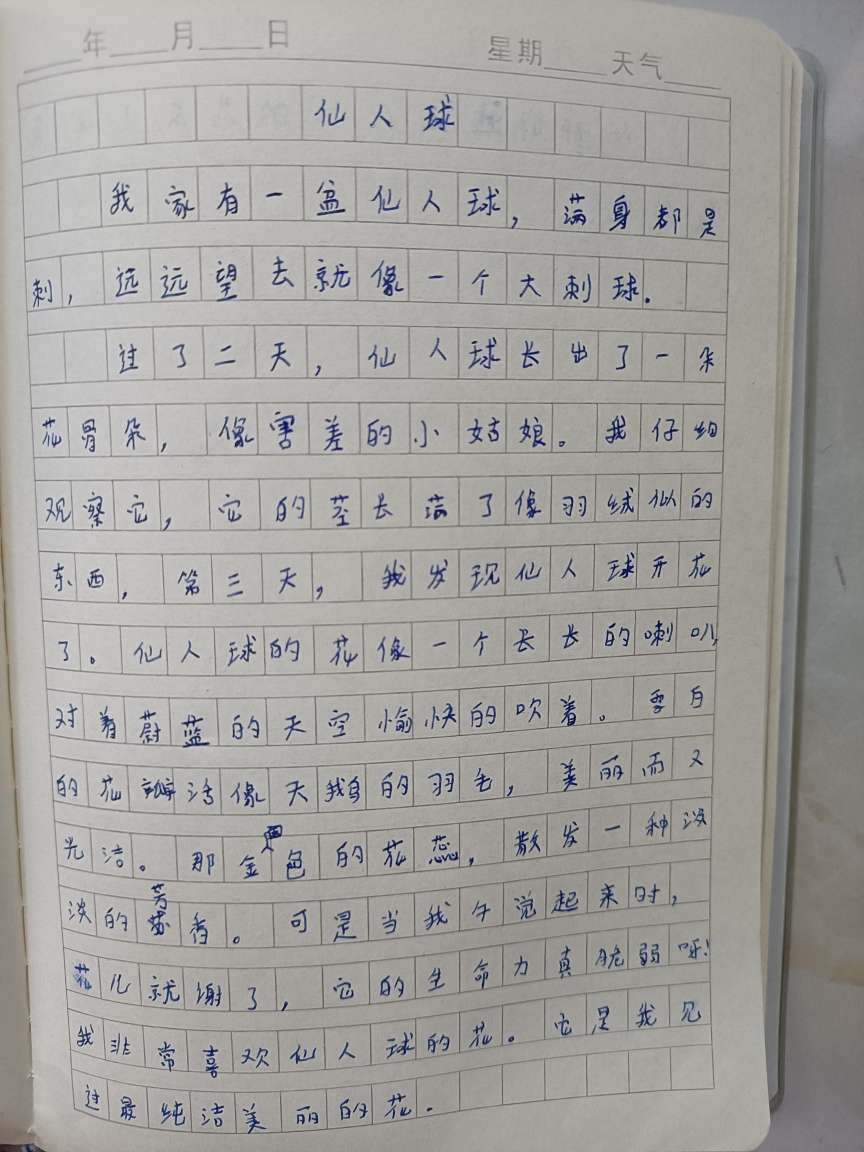 年 月 日 星期 天气
仙人球
我家有一盆仙人球，满身都是
刺，远远望去就像一个大刺球.
过了二天，仙人球长出了一朵
花骨朵，像害羞的小姑娘。我仔细
观察它，它的茎长满了像羽绒似的
东西，第三天，我发现仙人球开花
了。仙人球的花像一个长长的喇叭，
对着蔚蓝的天空愉快的吹着。雪白
的花瓣活像天鹅的羽毛，美丽而又
光洁。那金黄色的花蕊，散发一种淡
淡的芳香。可是当我午觉起来时，
花儿就谢了，它的生命力真脆弱呀!
我非常喜欢仙人球的花。它是我见
过最纯洁美丽的花.